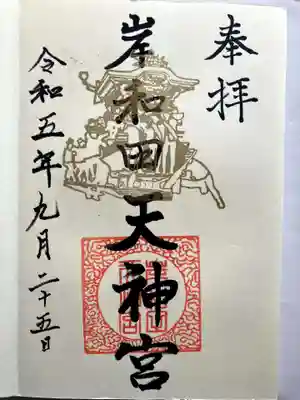 奉拝
岸和田天神宮
令和五年九月二十五日